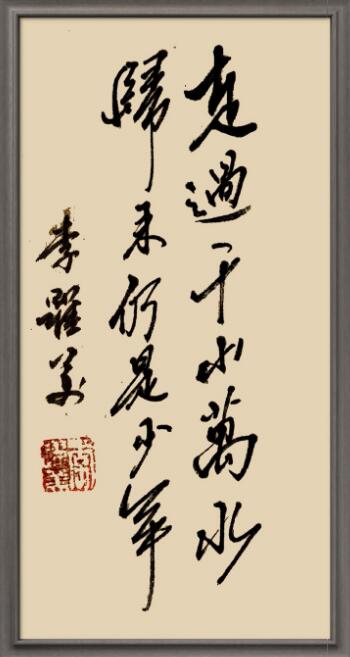 走過千山萬水
歸來仍是少年
李躍